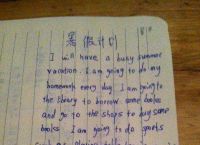 暑假计划
I will have a busy summer
vacation. I am going to do my
homework every day. I am going to
the library to borrow some books
and go to the shops to buy some
books I am going to do sports